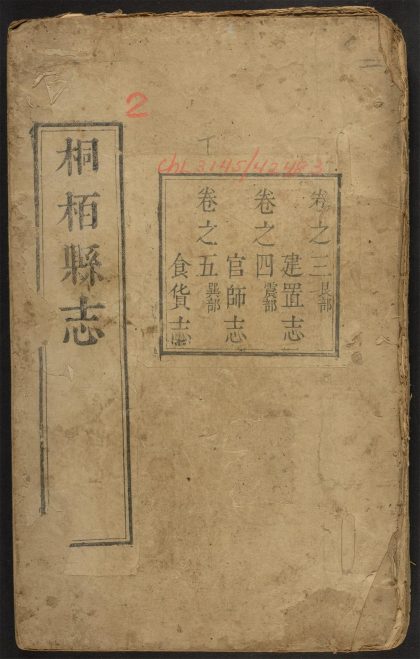 2
chi 3145/4248.3
桐栢縣志
卷之三艮部
建置志
卷之四震部
官師志
卷之五巽部
食貨志